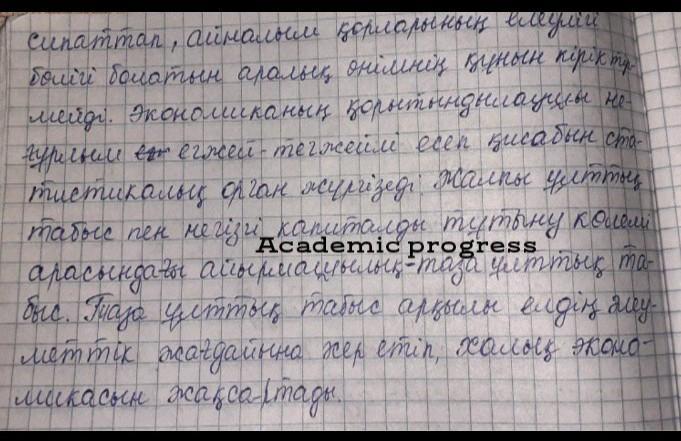 сипаттап, айналым қорларының елеулі
бөлігі болатын аралық өнімнің құнын кірікті-
мейді. Экономиканың қорытындылаушы не-
ғұрлым егжей-тегжейлі есеп қисабын ста-
тистикалық орган жүргізеді. Жалпы ұлттық
табыс пен негізгі капиталды тұтыну көлемі
Academic progress
арасындағы айырмашылық-таза ұлттық та-
быс. Таза ұлттық табыс арқылы елдің әлеу-
меттік жағдайына жер етіп, халық эконо-
микасын жақсартады.